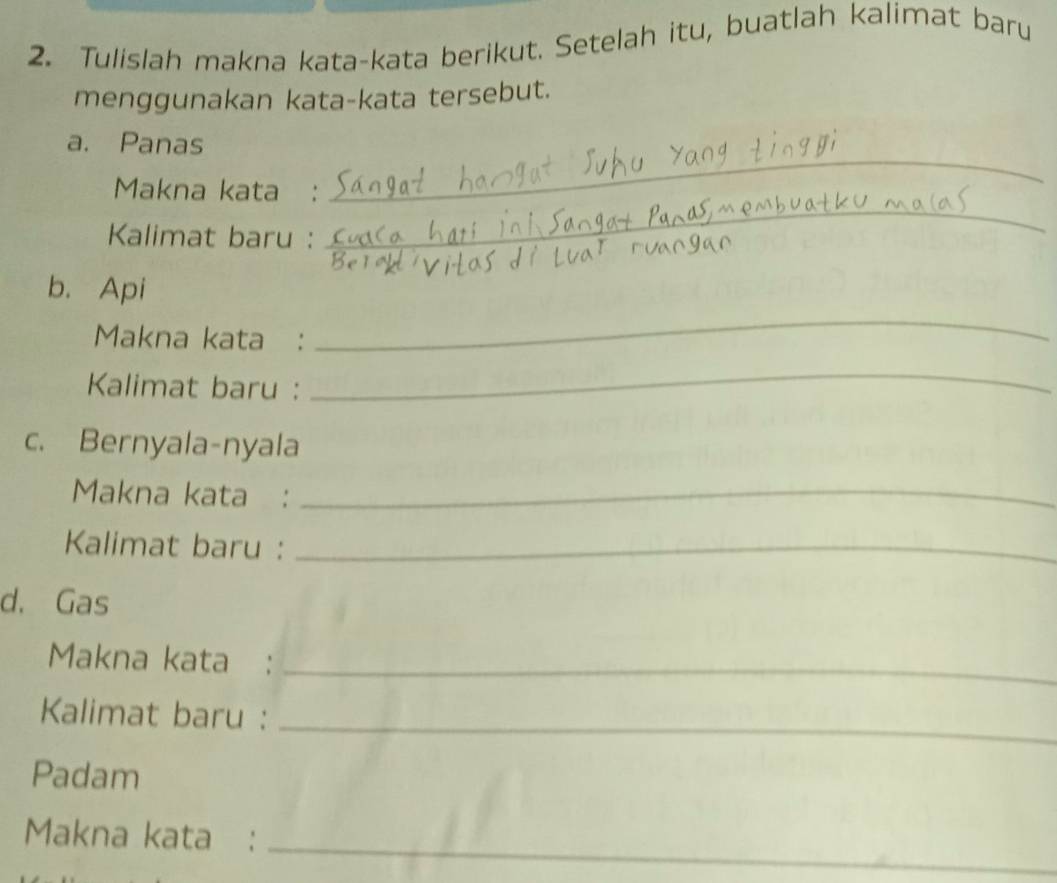 2. Tulislah makna kata-kata berikut. Setelah itu, buatlah kalimat baru
menggunakan kata-kata tersebut.
a. Panas
Makna kata : Sangat hangat suhu yang tinggi
Kalimat baru : Cuaca hari ini sangat Panas, membuatku malas
Beraktivitas di luar ruangan
b. Api
Makna kata :
Kalimat baru :
c. Bernyala-nyala
Makna kata :
Kalimat baru :
d. Gas
Makna kata :
Kalimat baru :
Padam
Makna kata :